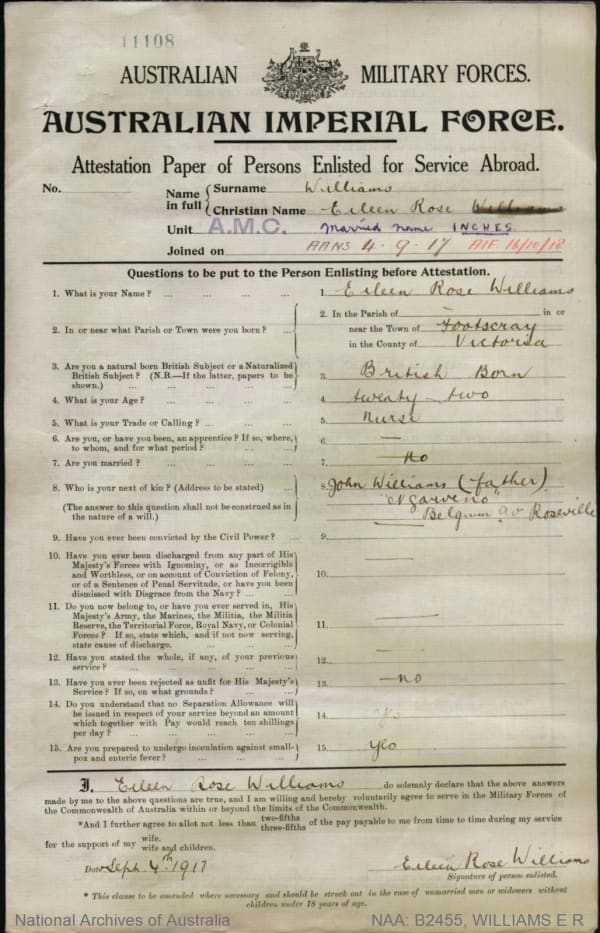 11108
AUSTRALIAN MILITARY FORCES.
AUSTRALIAN IMPERIAL FORCE.
Attestation Paper of Persons Enlisted for Service Abroad.
No. Name in full { Surname Williams
Christian Name Eileen Rose Williams
Unit A.M.C. Married name INCHES
Joined on AANS 4-9-17 AIF 16/10/18
Questions to be put to the Person Enlisting before Attestation.
1. What is your Name? ... ... ... ... 1. Eileen Rose Williams
2. In or near what Parish or Town were you born? ... 2. In the Parish of – in or
near the Town of Footscray
in the County of Victoria
3. Are you a natural born British Subject or a Naturalized
British Subject? (N.B.—If the latter, papers to be
shown.) ... ... ... ... 3. British Born
4. What is your Age? ... ... ... ... 4. twenty-two
5. What is your Trade or Calling? ... ... ... 5. Nurse
6. Are you, or have you been, an apprentice? If so, where,
to whom, and for what period? ... ... 6. —
7. Are you married? ... ... ... ... 7. —no
8. Who is your next of kin? (Address to be stated) ... 8. John Williams (father)
(The answer to this question shall not be construed as in
the nature of a will.)
Belgium av Roseville
9. Have you ever been convicted by the Civil Power? ... 9. —
10. Have you ever been discharged from any part of His
Majesty's Forces with Ignominy, or as Incorrigible
and Worthless, or on account of Conviction of Felony,
or of a Sentence of Penal Servitude, or have you been
dismissed with Disgrace from the Navy? ... ... 10. —
11. Do you now belong to, or have you ever served in, His
Majesty's Army, the Marines, the Militia, the Militia
Reserve, the Territorial Force, Royal Navy, or Colonial
Forces? If so, state which, and if not now serving,
state cause of discharge. ... ... ... 11. —
12. Have you stated the whole, if any, of your previous
service? ... ... ... ... 12. —
13. Have you ever been rejected as unfit for His Majesty's
Service? If so, on what grounds? ... ... 13. —no
14. Do you understand that no Separation Allowance will
be issued in respect of your service beyond an amount
which together with Pay would reach ten shillings
per day? ... ... ... ... 14. yes
15. Are you prepared to undergo inoculation against small-
pox and enteric fever? ... ... ... 15. yes
I, Eileen Rose Williams do solemnly declare that the above answers
made by me to the above questions are true, and I am willing and hereby voluntarily agree to serve in the Military Forces of
the Commonwealth of Australia within or beyond the limits of the Commonwealth.
*And I further agree to allot not less than two-fifths three-fifths of the pay payable to me from time to time during my service
for the support of my wife. wife and children.
Date Sept. 4th 1917 Eileen Rose Williams
Signature of person enlisted.
* This clause to be amended where necessary and should be struck out in the case of unmarried men or widowers without
children under 18 years of age.
National Archives of Australia NAA: B2455, WILLIAMS E R